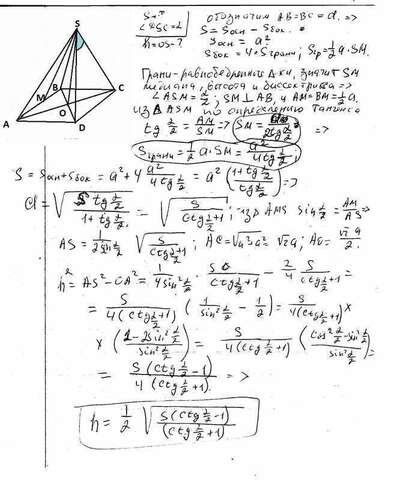 S
M
B
C
A
O
D
S - ?
∠ASC = α
h = OS - ?
обозначим AB = BC = a. =>
S = Sосн - Sбок.
Sосн = a²
Sбок = 4·Sграни; Sгр = 1/2 a·SM.
Грани - равнобедренные Δки, значит SM
медиана, высота и биссектриса =>
∠ASM = α/2, SM ⊥ AB, и AM = BM = 1/2 a.
из ΔASM по определению тангенса
tg α/2 = AM/SM => SM = a/(2tg α/2) =>
Sграни = 1/2 a·SM = a²/(4tg α/2);
S = Sосн + Sбок = a² + 4 a²/(4tg α/2) = a² ((1+tg α/2)/(tg α/2)) =>
a = √(S tg α/2 / (1+tg α/2)) = √(S/(ctg α/2 + 1)); из AMS sin α/2 = AM/AS =>
AS = 1/(2sin α/2) √(S/(ctg α/2 + 1)); AC = √(a²+a²) = √2 a; AO = √2 a/2.
h² = AS² - OA² = 1/(4sin² α/2) · S/(ctg α/2 + 1) - 2/4 S/(ctg α/2 + 1) =
= S/(4(ctg α/2 + 1)) (1/(sin² α/2) - 1/2) = S/(4(ctg α/2 + 1)) ×
× ((1 - 2sin² α/2)/(sin² α/2)) = S/(4(ctg α/2 + 1)) ((cos² α/2 - sin² α/2)/(sin² α/2)) =
= S(ctg α/2 - 1)/(4(ctg α/2 + 1)) =>
h = 1/2 √(S(ctg α/2 - 1)/(ctg α/2 + 1))